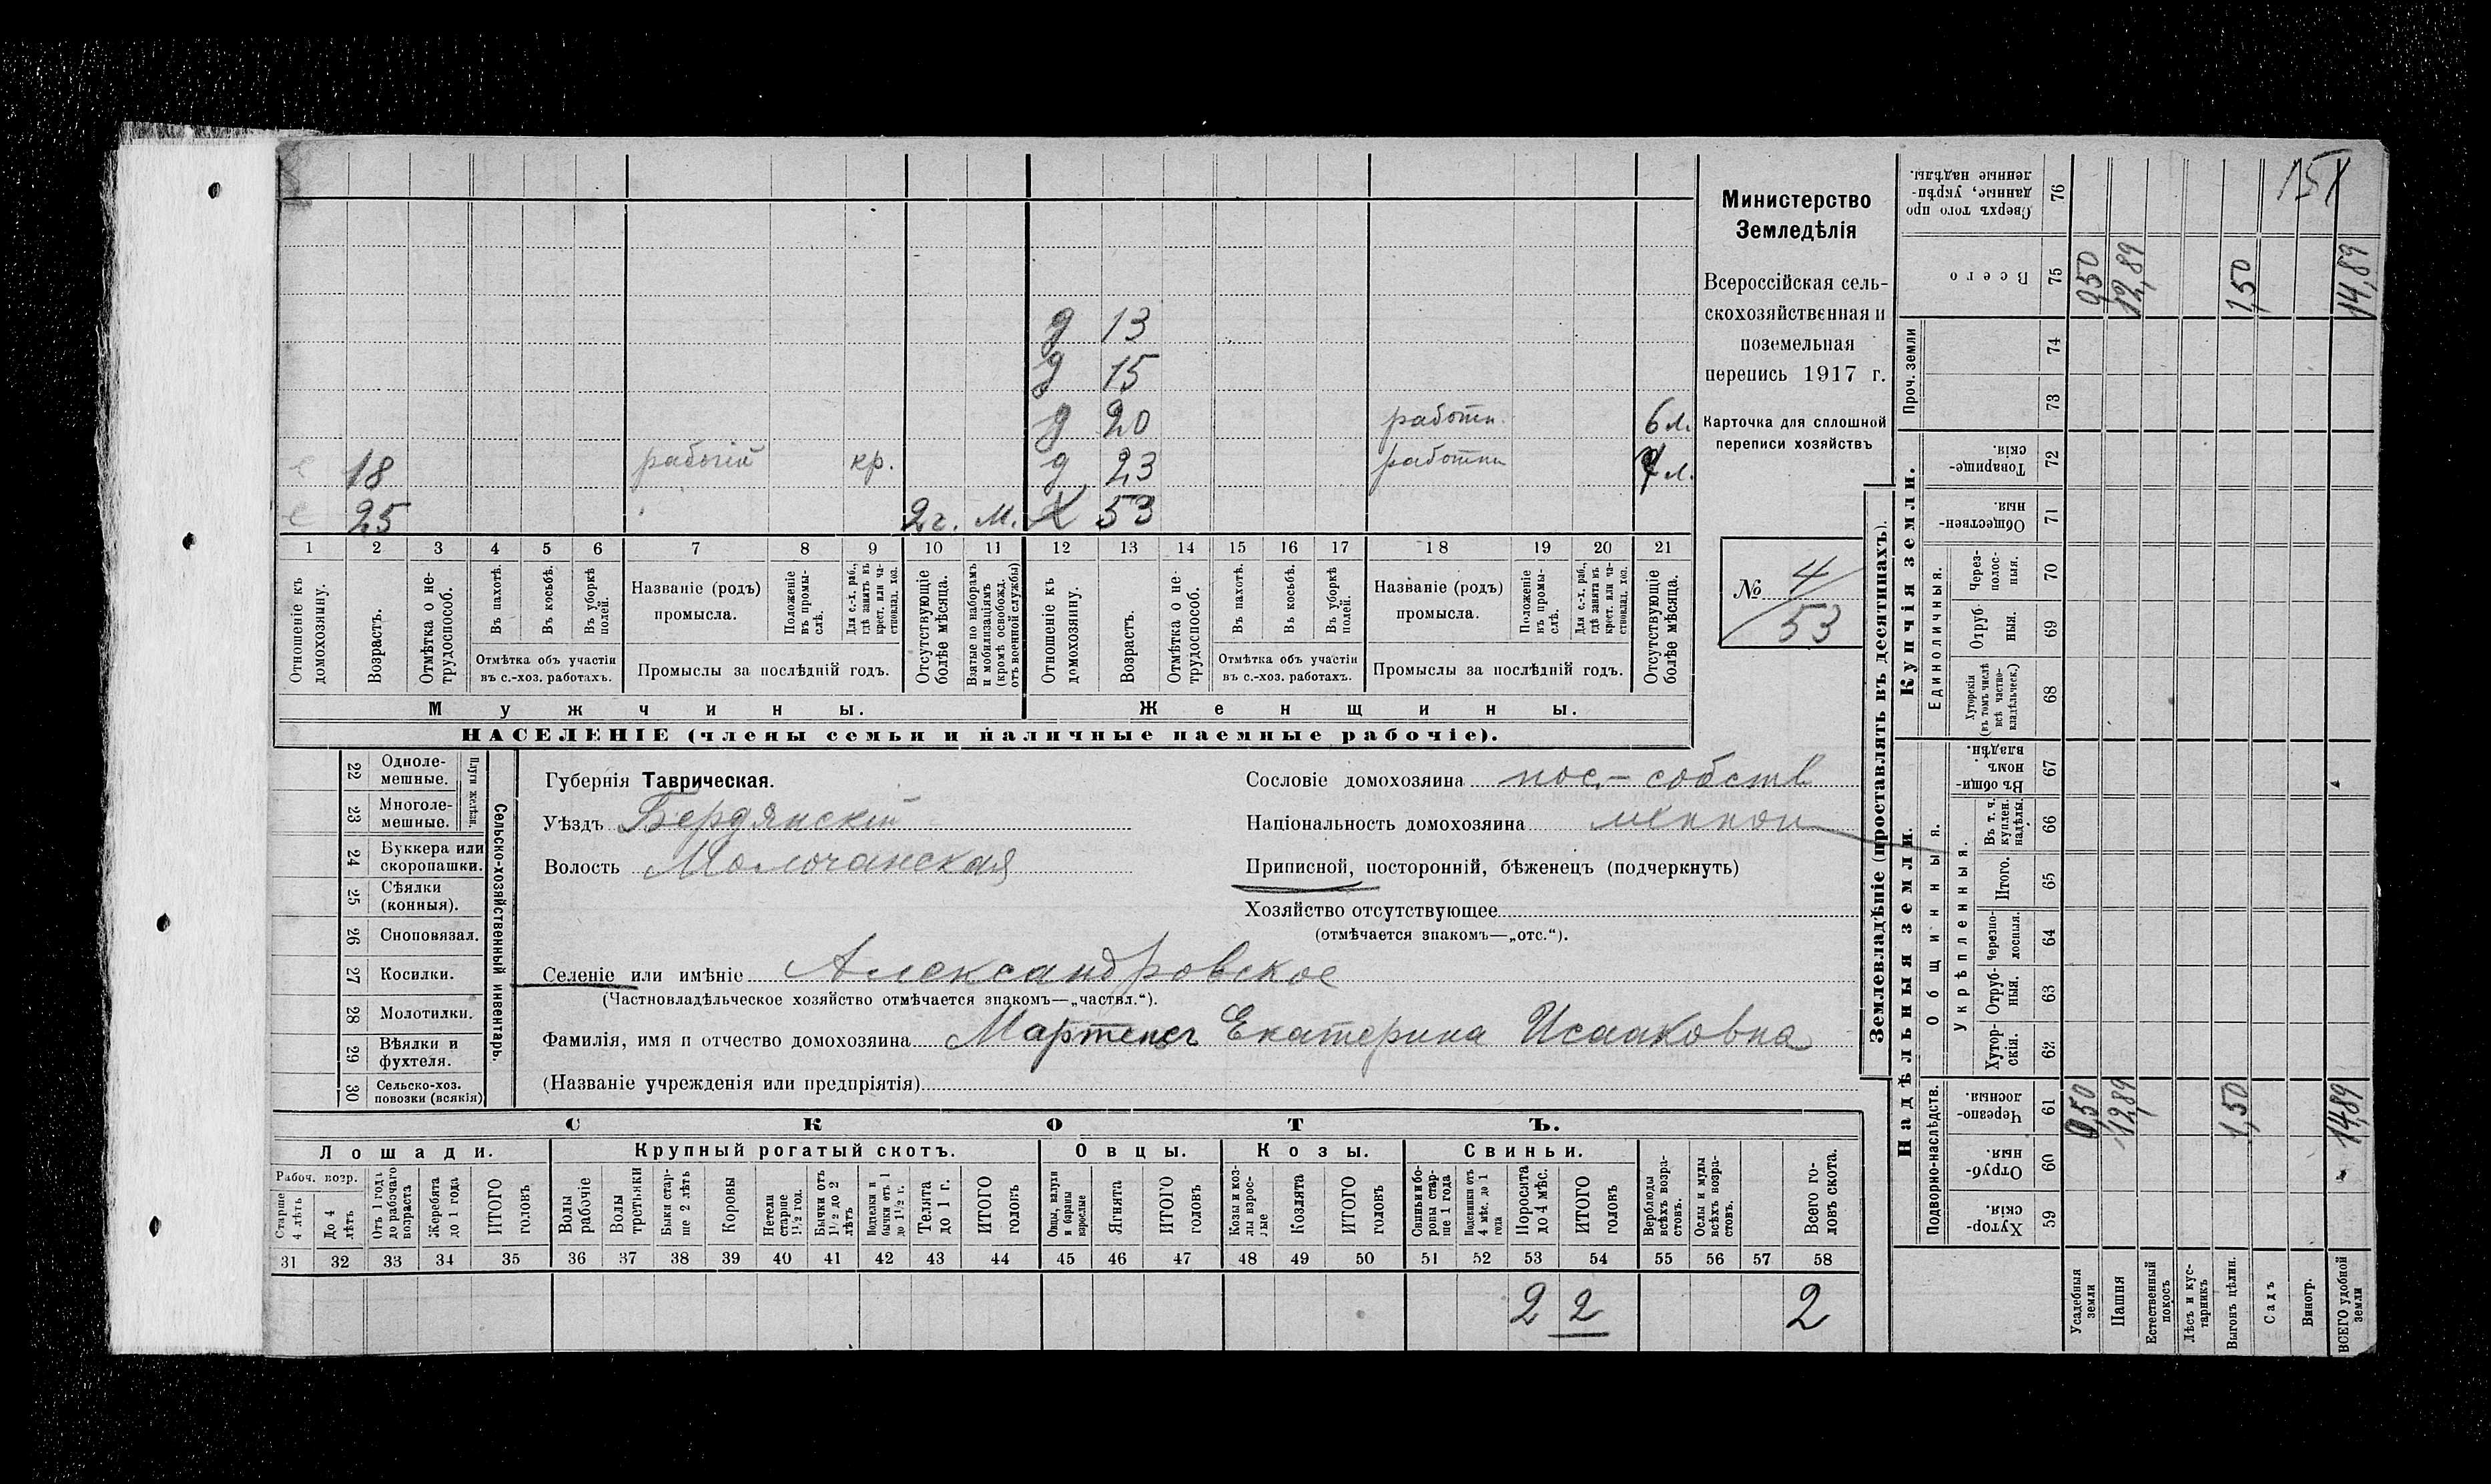 151
д 13
д 15
д 20 работн. 6 м.
с 18 рабочій кр. д 23 работн 7 м.
с 25 2 г. м. Х 53
1 2 3 4 5 6 7 8 9 10 11 12 13 14 15 16 17 18 19 20 21
Отношеніе къ домохозяину.
Возрастъ.
Отмѣтка о нетрудоспособ.
Въ пахотѣ.
Въ косьбѣ.
Въ уборкѣ полей.
Отмѣтка объ участіи
въ с.-хоз. работахъ.
Названіе (родъ)
промысла.
Положеніе въ промыслѣ.
Для с.-х. раб., гдѣ занятъ въ крест. или частновлад. хоз.
Промыслы за послѣдній годъ.
Отсутствующіе болѣе мѣсяца.
Взятые по наборамъ и мобилизаціямъ (кромѣ освобожд. отъ военной службы)
Отношеніе къ домохозяину.
Возрастъ.
Отмѣтка о нетрудоспособ.
Въ пахотѣ.
Въ косьбѣ.
Въ уборкѣ полей.
Отмѣтка объ участіи
въ с.-хоз. работахъ.
Названіе (родъ)
промысла.
Положеніе въ промыслѣ.
Для с.-х. раб., гдѣ занятъ въ крест. или частновлад. хоз.
Промыслы за послѣдній годъ.
Отсутствующіе болѣе мѣсяца.
Мужчины. Женщины.
НАСЕЛЕНІЕ (члены семьи и наличные наемные рабочіе).
Министерство
Земледѣлія
Всероссійская сель-
скохозяйственная и
поземельная
перепись 1917 г.
Карточка для сплошной
переписи хозяйствъ
№ 4
53
22 Одноле-
мешные.
23 Многоле-
мешные.
Плуги желѣзн.
24 Буккера или
скоропашки.
25 Сѣялки
(конныя).
26 Сноповязал.
27 Косилки.
28 Молотилки.
29 Вѣялки и
фухтеля.
30 Сельско-хоз.
повозки (всякія)
Сельско-хозяйственный инвентарь.
Губернія Таврическая.
Уѣздъ Бердянскій
Волость Молочанская
Сословіе домохозяина пос.- собств
Національность домохозяина меннон
Приписной, посторонній, бѣженецъ (подчеркнуть)
Хозяйство отсутствующее
(отмѣчается знакомъ—„отс.“).
Селеніе или имѣніе Александровское
(Частновладѣльческое хозяйство отмѣчается знакомъ—„частвл.“).
Фамилія, имя и отчество домохозяина Мартенсъ Екатерина Исааковна
(Названіе учрежденія или предпріятія)
СКОТЪ.
Лошади. Крупный рогатый скотъ. Овцы. Козы. Свиньи.
Рабоч. возр.
Старше 4 лѣтъ
До 4 лѣтъ
Отъ 1 года до рабочаго возраста
Жеребята до 1 года
ИТОГО головъ
Волы рабочіе
Волы третьяки
Быки старше 2 лѣтъ
Коровы
Нетели старше 1½ год.
Бычки отъ 1½ до 2 лѣтъ
Подтелки и бычки отъ 1 до 1½ г.
Телята до 1 г.
ИТОГО головъ
Овцы, валухи и бараны взрослые
Ягнята
ИТОГО головъ
Козы и козлы взрослые
Козлята
ИТОГО головъ
Свиньи и боровы старше 1 года
Подсвинки отъ 4 мѣс. до 1 года
Поросята до 4 мѣс.
ИТОГО головъ
Верблюды всѣхъ возрастовъ.
Ослы и мулы всѣхъ возрастовъ.
Всего головъ скота.
31 32 33 34 35 36 37 38 39 40 41 42 43 44 45 46 47 48 49 50 51 52 53 54 55 56 57 58
2 2 2
Землевладѣніе (проставлять въ десятинахъ).
Надѣльныя земли. Купчія земли. Проч. земли
Подворно-наслѣдств.
Общинныя.
Укрѣпленныя.
Единоличныя.
Хутор-
скія.
Отруб-
ныя.
Черезпо-
лосныя.
Хутор-
скія.
Отруб-
ныя.
Черезпо-
лосныя.
Итого.
Въ т. ч. куплен. надѣлы.
Въ общин-
номъ
владѣн.
Хуторскія (въ томъ числѣ всѣ частно-владѣльческ.)
Отруб-
ныя.
Через-
полос-
ныя.
Обществен-
ныя.
Товарище-
скія.
Всего
Сверхъ того про
данные, укрѣп-
ленные надѣлы.
59 60 61 62 63 64 65 66 67 68 69 70 71 72 73 74 75 76
Усадебныя земли 0,50 0,50
Пашня 12,89 12,89
Естественный покосъ
Лѣсъ и кус-
тарникъ
Выгонъ цѣлин. 1,50 1,50
Садъ
Виногр.
ВСЕГО удобной земли 14,89 14,89